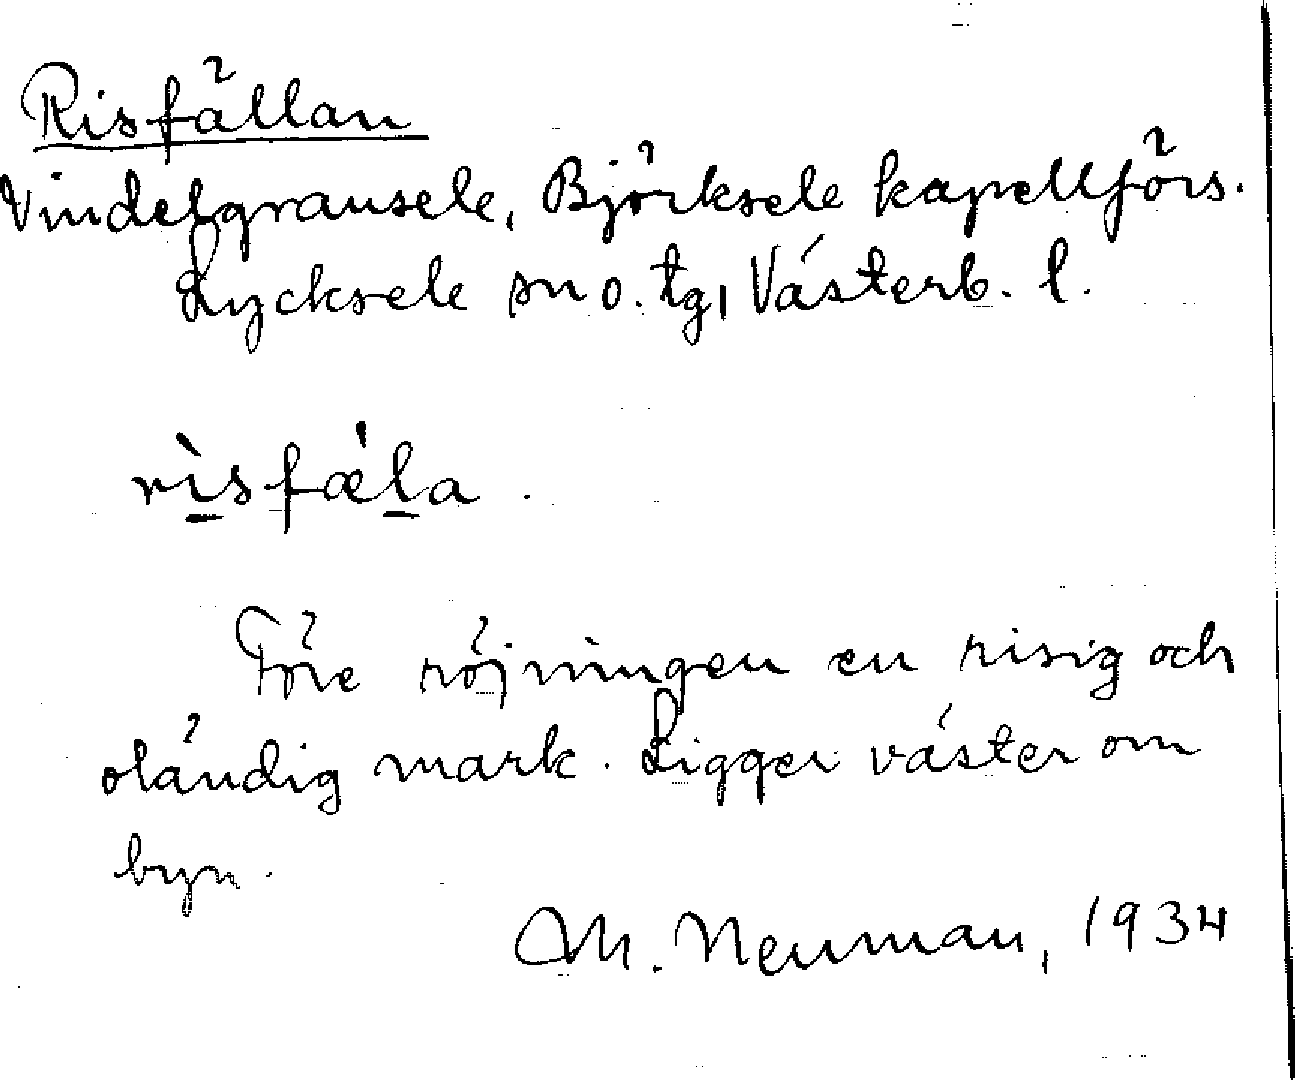 Risfällan
Vindelgransele, Björksele kapellförs.
Lycksele sn o. tg, Västerb. l.
rìsfæ̀la.
Före röjningen en risig och
oländig mark. Ligger väster om
byn.
M. Neuman, 1934